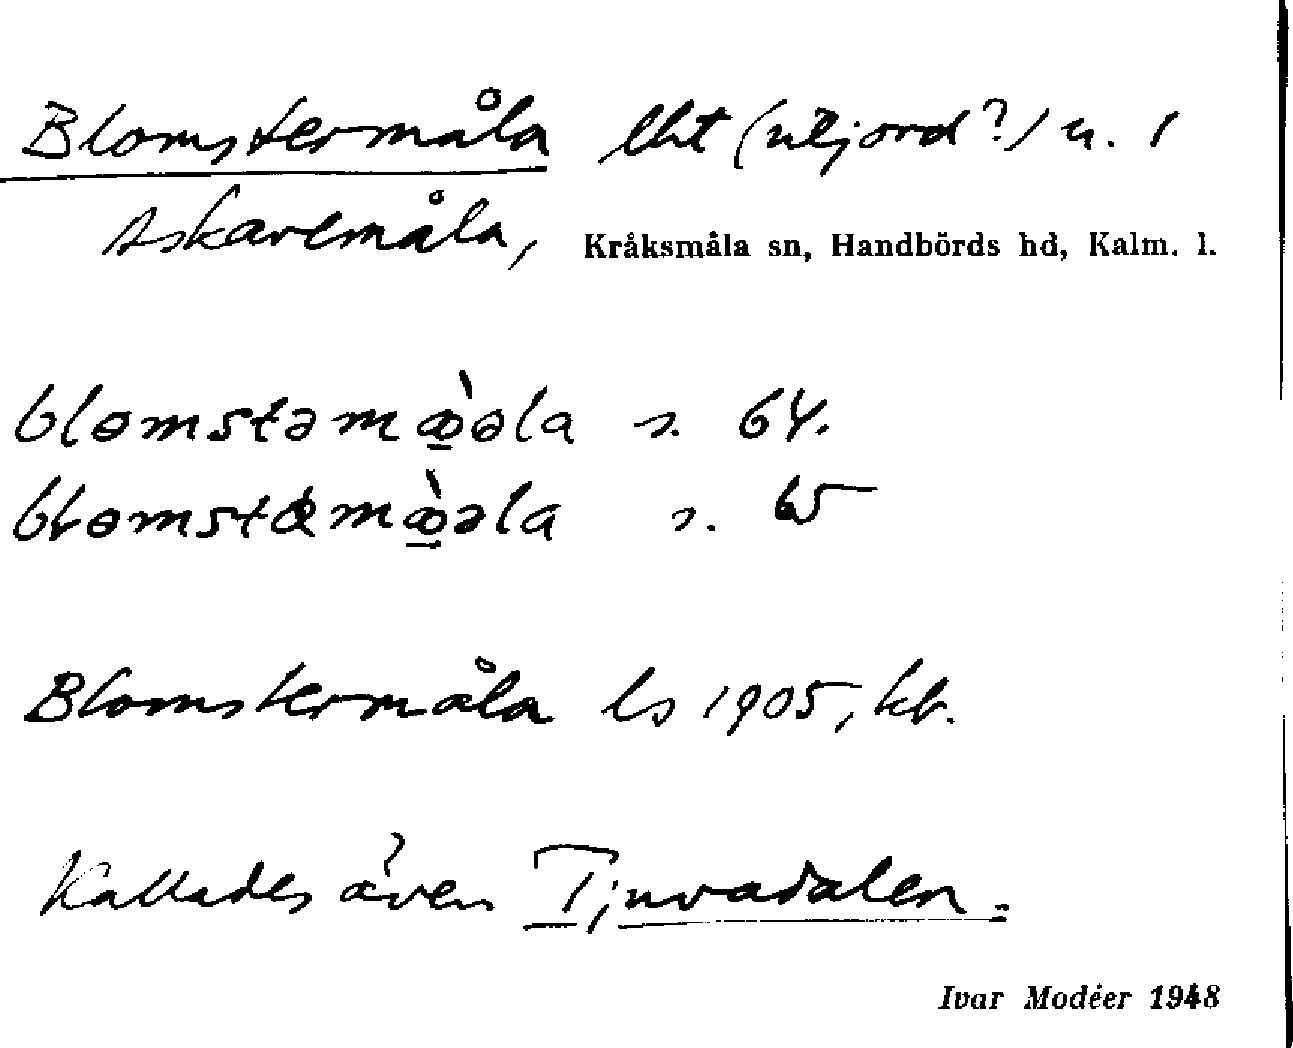 Blomstermåla lht (uljord?) u. 1
Askaremåla, Kråksmåla sn, Handbörds hd, Kalm. l.
blomstamæ̀əla s. 64.
s. 65
Blomstermåla ls 1905, kb.
Kallades även Tjuvadalen.
Ivar Modéer 1948